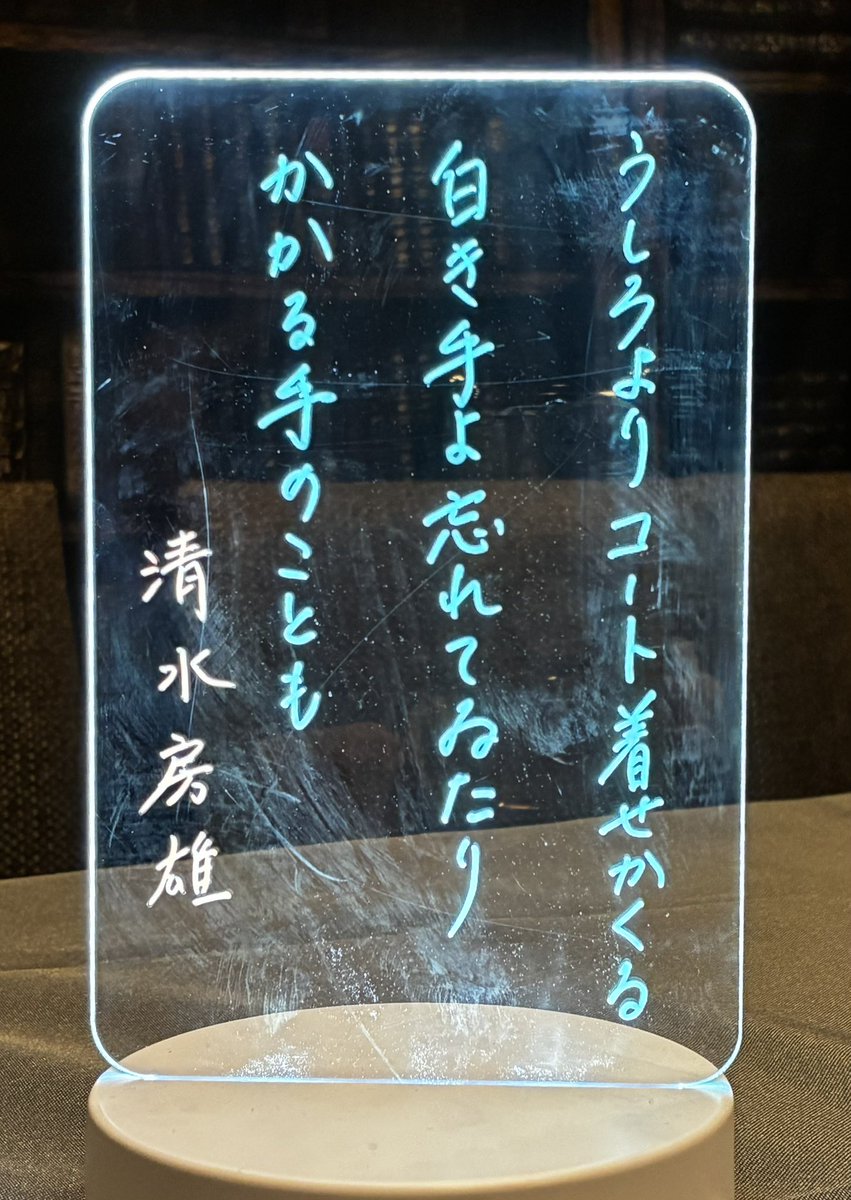 うしろよりコート着せかくる
白き手よ忘れてゐたり
かかる手のことも
清水房雄